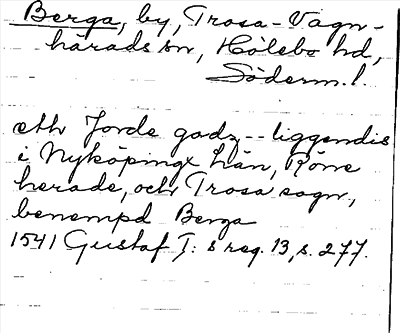 Berga, by, Trosa-Vagn-
härads sn, Hölebo hd,
Söderm. l.
eth Jorde godz -- liggendis
i Nyköpings Län, Röne
herade, och Trosa sogn,
benempd Berga
1541 Gustaf I:s reg. 13, s. 277.